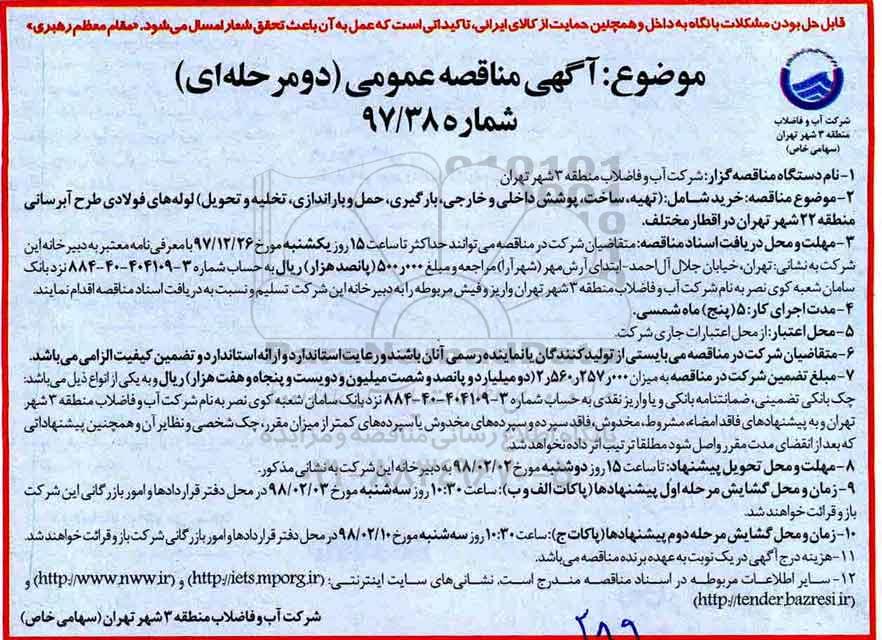 قابل حل بودن مشکلات با نگاه به داخل و همچنین حمایت از کالای ایرانی، تاکیداتی است که عمل به آن باعث تحقق شعار امسال می‌شود. «مقام معظم رهبری»
موضوع: آگهی مناقصه عمومی (دومرحله‌ای)
شماره ۹۷/۳۸
شرکت آب و فاضلاب
منطقه ۳ شهر تهران
(سهامی خاص)
۱- نام دستگاه مناقصه‌گزار: شرکت آب و فاضلاب منطقه ۳ شهر تهران
۲- موضوع مناقصه: خرید شامل: (تهیه، ساخت، پوشش داخلی و خارجی، بارگیری، حمل و باراندازی، تخلیه و تحویل) لوله‌های فولادی طرح آبرسانی
منطقه ۲۲ شهر تهران در اقطار مختلف.
۳- مهلت و محل دریافت اسناد مناقصه: متقاضیان شرکت در مناقصه می‌توانند حداکثر تا ساعت ۱۵ روز یکشنبه مورخ ۹۷/۱۲/۲۶ با معرفی‌نامه معتبر به دبیرخانه این
شرکت به نشانی: تهران، خیابان جلال آل‌احمد- ابتدای آرش‌مهر (شهرآرا) مراجعه و مبلغ ۵۰۰٫۰۰۰ (پانصد هزار) ریال به حساب شماره ۳-۴۰۴۱۰۹-۴۰-۸۸۴ نزد بانک
سامان شعبه کوی نصر به نام شرکت آب و فاضلاب منطقه ۳ شهر تهران واریز و فیش مربوطه را به دبیرخانه این شرکت تسلیم و نسبت به دریافت اسناد مناقصه اقدام نمایند.
۴- مدت اجرای کار: ۵ (پنج) ماه شمسی.
۵- محل اعتبار: از محل اعتبارات جاری شرکت.
۶- متقاضیان شرکت در مناقصه می‌بایستی از تولیدکنندگان یا نماینده رسمی آنان باشند و رعایت استاندارد و ارائه استاندارد و تضمین کیفیت الزامی می‌باشد.
۷- مبلغ تضمین شرکت در مناقصه به میزان ۲٫۵۶۰٫۲۵۷٫۰۰۰ (دو میلیارد و پانصد و شصت میلیون و دویست و پنجاه و هفت هزار) ریال و به یکی از انواع ذیل می‌باشد:
چک بانکی تضمینی، ضمانتنامه بانکی و یا واریز نقدی به حساب شماره ۳-۴۰۴۱۰۹-۴۰-۸۸۴ نزد بانک سامان شعبه کوی نصر به نام شرکت آب و فاضلاب منطقه ۳ شهر
تهران و به پیشنهادهای فاقد امضاء، مشروط، مخدوش، فاقد سپرده و سپرده‌های مخدوش یا سپرده‌های کمتر از میزان مقرر، چک شخصی و نظایر آن و همچنین پیشنهاداتی
که بعد از انقضای مدت مقرر واصل شود مطلقا ترتیب اثر داده نخواهد شد.
۸- مهلت و محل تحویل پیشنهاد: تا ساعت ۱۵ روز دوشنبه مورخ ۹۸/۰۲/۰۲ به دبیرخانه این شرکت به نشانی مذکور.
۹- زمان و محل گشایش مرحله اول پیشنهادها (پاکات الف و ب): ساعت ۱۰:۳۰ روز سه‌شنبه مورخ ۹۸/۰۲/۰۳ در محل دفتر قراردادها و امور بازرگانی این شرکت
باز و قرائت خواهند شد.
۱۰- زمان و محل گشایش مرحله دوم پیشنهادها (پاکات ج): ساعت ۱۰:۳۰ روز سه‌شنبه مورخ ۹۸/۰۲/۱۰ در محل دفتر قراردادها و امور بازرگانی شرکت باز و قرائت خواهند شد.
۱۱- هزینه درج آگهی در یک نوبت به عهده برنده مناقصه می‌باشد.
۱۲- سایر اطلاعات مربوطه در اسناد مناقصه مندرج است. نشانی‌های سایت اینترنتی: (http://iets.mporg.ir) و (http://www.nww.ir) و
(http://tender.bazresi.ir)
شرکت آب و فاضلاب منطقه ۳ شهر تهران (سهامی خاص)